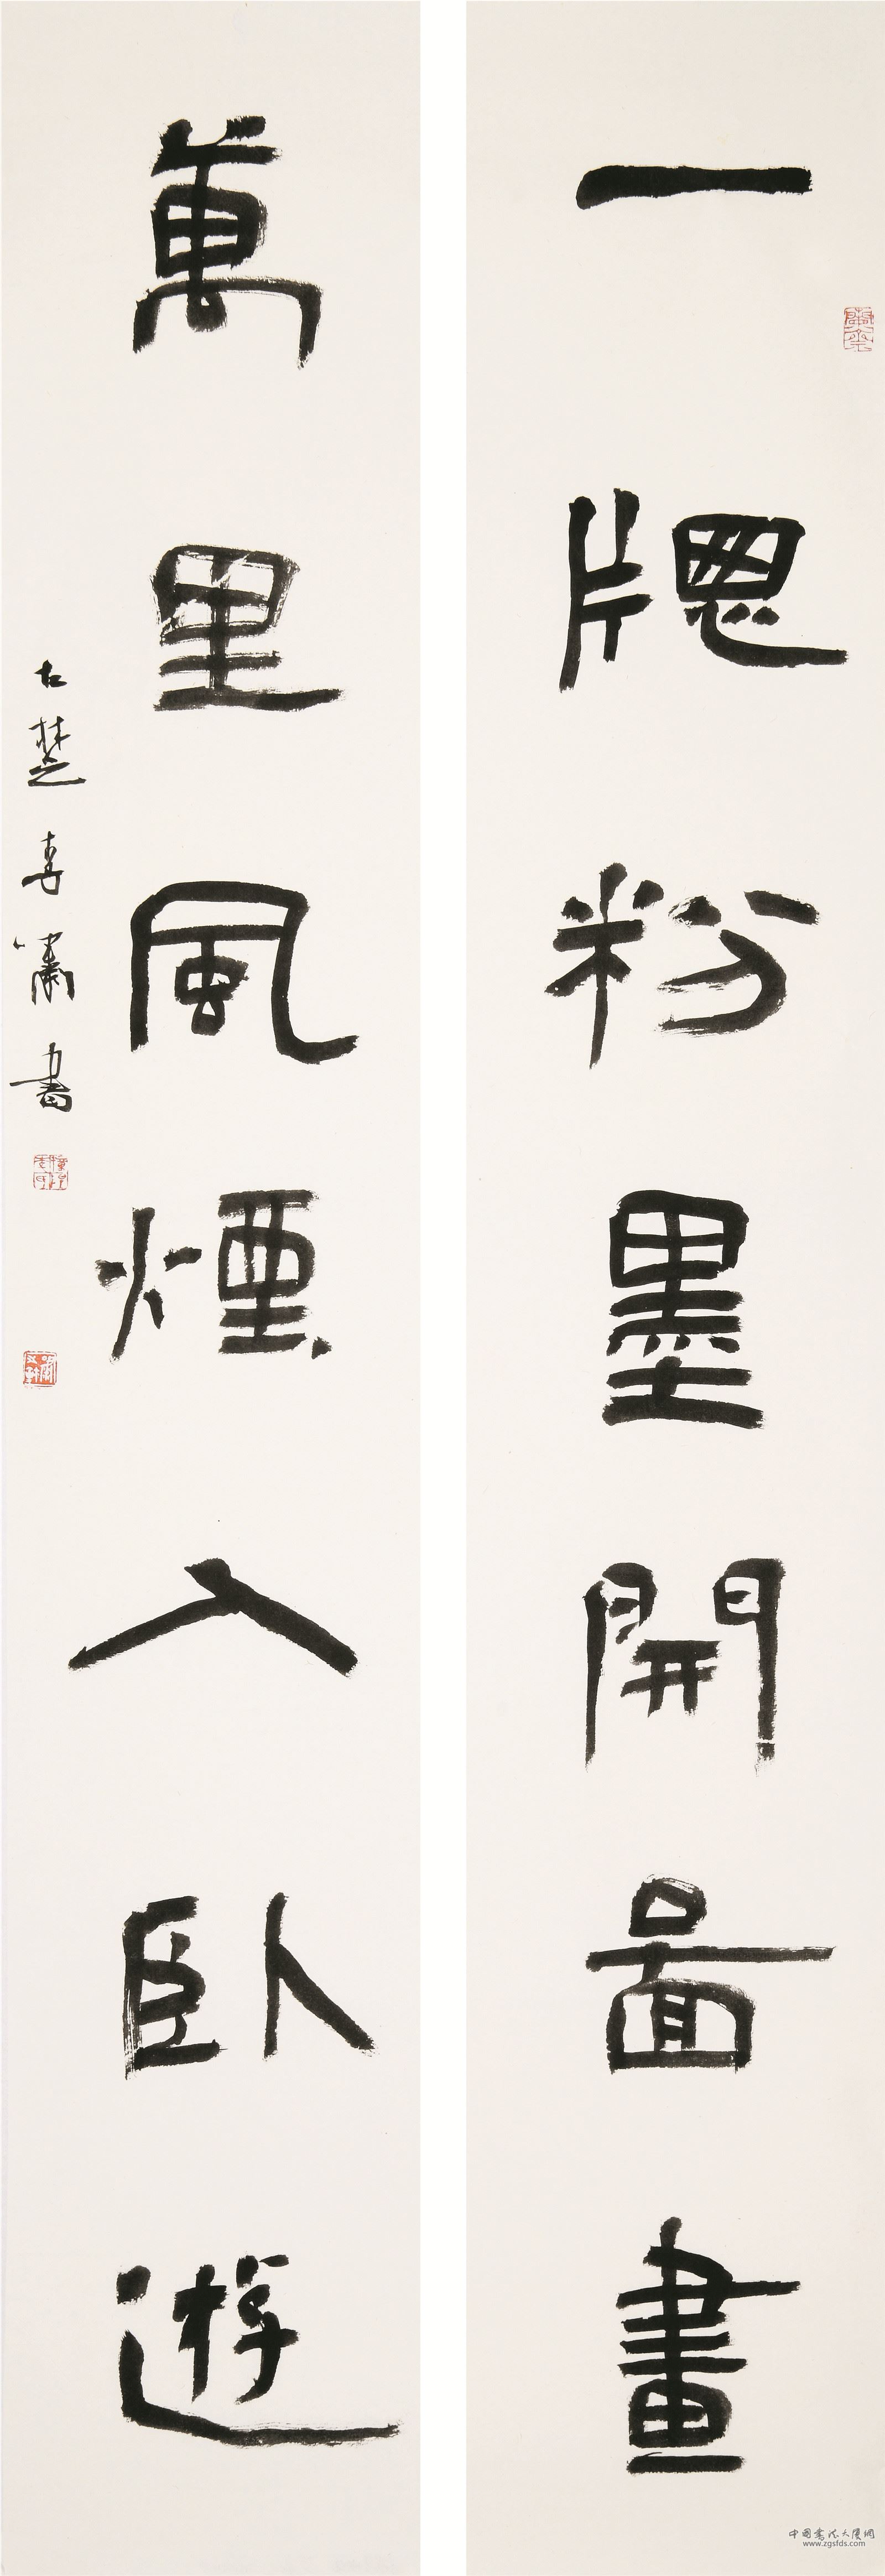 一牎粉墨開圖畫
萬里風煙入臥遊
古楚李嘯書
中国书法大厦网
www.zgsfds.com